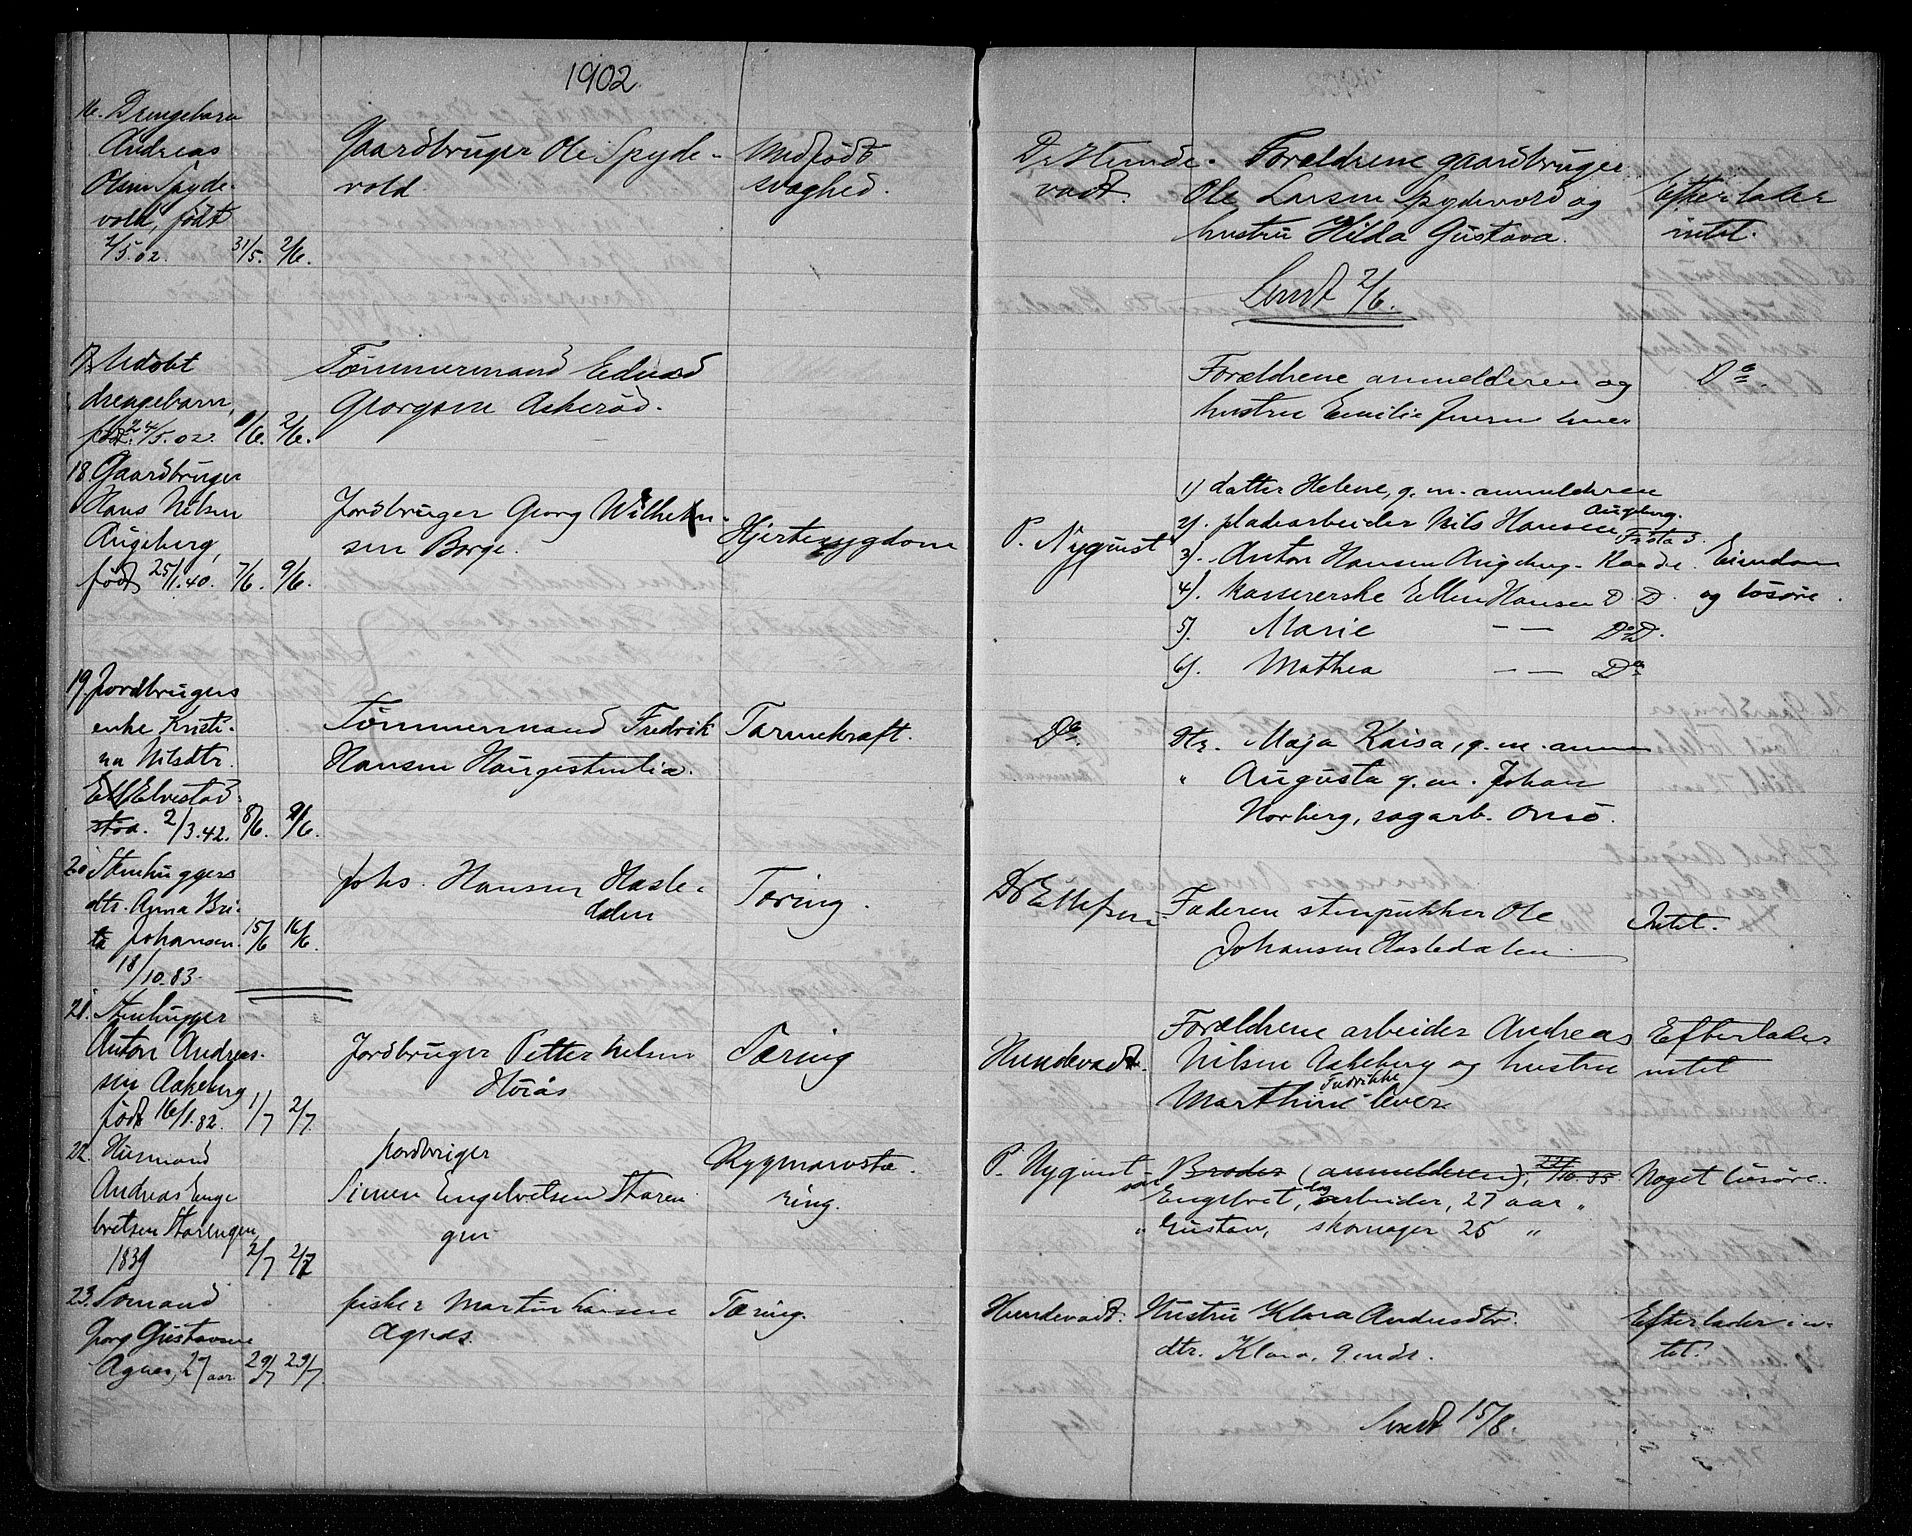 1902.
16. Drengebarn
Andreas
Olsen Spyde-
vold, født
2/5.02. 31/5. 2/6.
Gaardbruger Ole Spyde-
vold.
Medfødt
svaghed.
Dr. Hunde-
vadt.
Forældrene gaardbruger
Ole Larsen Spydevold og
hustru Hilda Gustava.
Efterlader
intet.
Sendt 2/6.
17. Udøbt
drengebarn,
født 24/5.02. 1/6. 2/6.
Tømmermand Edvard
Georgsen Askerød.
Forældrene anmelderen og
hustru Emilie
Do
18. Gaardbruger
Hans Nilsen
Augeberg,
født 25/1.40. 7/6. 9/6.
Jordbruger Georg Wilhelm-
sen Borge.
Hjertesygdom
P. Nyquist
1) datter Helene, g. m. anmelderen
2). pladearbeider Nils Hansen Augeberg. Fr.stad.
3). Anton Hansen Augeberg - Raade.
4). kassererske Ellen Hansen D. D.
5). Marie — — Do D.
6). Mathea — — Do
Eiendom
og løsøre.
19. Jordbrugers
enke Kristi-
na Nilsdtr.
Elvestad
2/3.42. 8/6. 9/6.
Tømmermand Fredrik
Hansen Haugestenlia.
Tarmkræft.
Do.
Dtr. Maja Kaisa, g. m. anm
" Augusta g. m. Johan
Norberg, sagarb. Onsø.
20. Stenhuggers
dtr. Anna Bri-
ta Johansen. 15/6 16/6.
18/10.83.
Johs. Hansen Hasle-
dalen
Tæring.
Dr Ellefsen
Faderen stenpukker Ole
Johansen Hasledalen
Intet.
21. Stenhugger
Anton Andreas-
sen Aakeberg
født 16/1.82. 1/7 2/7.
Jordbruger Petter Nilsen
Høiås
Tæring
Hundevadt.
Forældrene arbeider Andreas
Nilsen Aakeberg og hustru
Marthine Fredrikke lever
Efterlader
intet
22. Husmand
Andreas Enge
bretsen Starengen,
1839 2/7 2/7
jordbruger
Simen Engebretsen Staren
gen
Rygmarvstæ-
ring.
P. Nyquist
Broder (anmelderen), 10.35
søn Engebret, arbeider, 27 aar
" Gustav, skomager 25 "
Noget løsøre.
23. Sømand
Georg Gustavsen
Agnes, 27 aar 29/7 29/7.
fisker Martin Hansen
Agnes.
Tæring.
Hundevadt.
Hustru Klara Andersdtr.
dtr. Klara, 9 mdr.
Efterlader in-
tet.
Sendt 15/8.